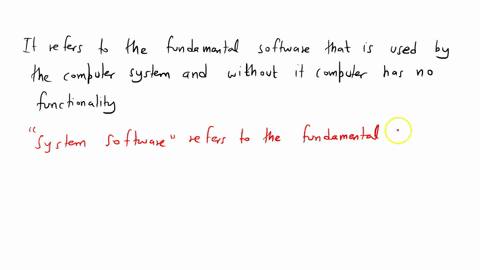 It refers to the fundamental software that is used by
the computer system and without it computer has no
functionality
"System software" refers to the fundamental